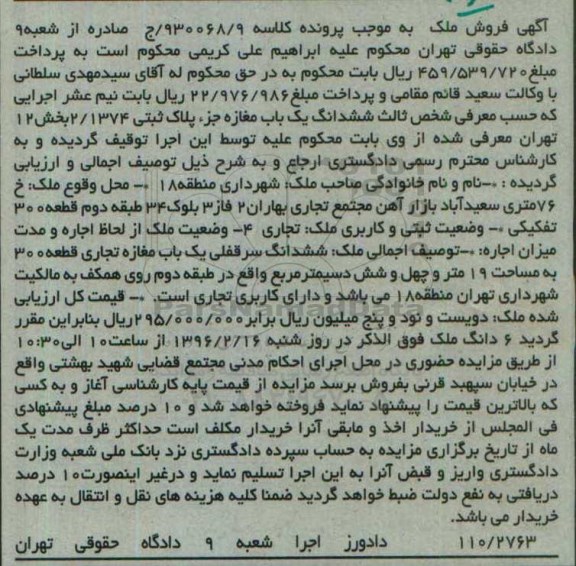 آگهی فروش ملک به موجب پرونده کلاسه ۹۳۰۰۶۸/۹/ج صادره از شعبه۹
دادگاه حقوقی تهران محکوم علیه ابراهیم علی کریمی محکوم است به پرداخت
مبلغ۴۵۹/۵۳۹/۷۲۰ ریال بابت محکوم به در حق محکوم له آقای سیدمهدی سلطانی
با وکالت سعید قائم مقامی و پرداخت مبلغ۲۲/۹۷۶/۹۸۶ ریال بابت نیم عشر اجرایی
که حسب معرفی شخص ثالث ششدانگ یک باب مغازه جزء پلاک ثبتی ۲/۱۳۷۴بخش۱۲
تهران معرفی شده از وی بابت محکوم علیه توسط این اجرا توقیف گردیده و به
کارشناس محترم رسمی دادگستری ارجاع و به شرح ذیل توصیف اجمالی و ارزیابی
گردیده : *-نام و نام خانوادگی صاحب ملک: شهرداری منطقه۱۸ *- محل وقوع ملک: خ
۷۶متری سعیدآباد بازار آهن مجتمع تجاری بهاران۲ فاز۳ بلوک۳۴ طبقه دوم قطعه۳۰۰
تفکیکی *- وضعیت ثبتی و کاربری ملک: تجاری ۴- وضعیت ملک از لحاظ اجاره و مدت
میزان اجاره: *-توصیف اجمالی ملک: ششدانگ سرقفلی یک باب مغازه تجاری قطعه۳۰۰
به مساحت ۱۹ متر و چهل و شش دسیمترمربع واقع در طبقه دوم روی همکف به مالکیت
شهرداری تهران منطقه۱۸ می باشد و دارای کاربری تجاری است. *- قیمت کل ارزیابی
شده ملک: دویست و نود و پنج میلیون ریال برابر۲۹۵/۰۰۰/۰۰۰ریال بنابراین مقرر
گردید ۶ دانگ ملک فوق الذکر در روز شنبه ۱۳۹۶/۲/۱۶ از ساعت۱۰ الی۱۰:۳۰
از طریق مزایده حضوری در محل اجرای احکام مدنی مجتمع قضایی شهید بهشتی واقع
در خیابان سپهبد قرنی بفروش برسد مزایده از قیمت پایه کارشناسی آغاز و به کسی
که بالاترین قیمت را پیشنهاد نماید فروخته خواهد شد و ۱۰ درصد مبلغ پیشنهادی
فی المجلس از خریدار اخذ و مابقی آنرا خریدار مکلف است حداکثر ظرف مدت یک
ماه از تاریخ برگزاری مزایده به حساب سپرده دادگستری نزد بانک ملی شعبه وزارت
دادگستری واریز و قبض آنرا به این اجرا تسلیم نماید و درغیر اینصورت۱۰ درصد
دریافتی به نفع دولت ضبط خواهد گردید ضمنا کلیه هزینه های نقل و انتقال به عهده
خریدار می باشد.
۱۱۰/۲۷۶۳ دادورز اجرا شعبه ۹ دادگاه حقوقی تهران